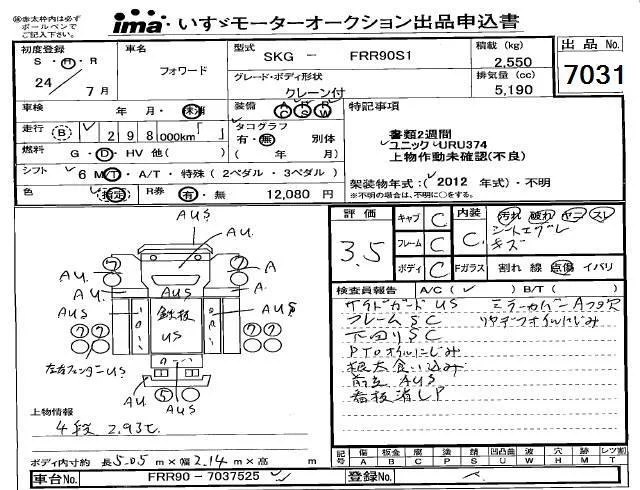 ※赤太枠内は必ずボールペンでご記入下さい。
ima いすゞモーターオークション出品申込書
初度登録 S・H・R 24年 7月
車名 フォワード
型式 SKG － FRR90S1
積載 (kg) 2,550
出品 No. 7031
グレード・ボディ形状 クレーン付
排気量 (cc) 5,190
車検 年 月・抹消
装備 AC PS PW
特記事項
走行 (B) 298,000km「 」
タコグラフ 有・無 別体 ( 年 月)
書類2週間
ユニック URU374
上物作動未確認(不良)
燃料 G・D・HV 他( )
シフト 6 MT・A/T・特殊 (2ペダル・3ペダル)
架装物年式:( 2012 年式)・不明
※不明の場合は、不明に○をする。
色 指定 R券 有・無 12,080 円
評価 3.5
キャブ C
フレーム C
ボディ C
内装 C
汚れ 破れ ヤニ スレ
シートエグレ
キズ
Fガラス 割れ 線 点傷 イバリ
検査員報告 A/C( ✓ ) B/T( )
サイドガード US ミラーカバーAフタ穴
フレームSC リヤデフオイルにじみ
下回りSC
PTOオイルにじみ
根太食い込み
前立 AUS
看板消しP
AUS
AU
AU
AU
A
A
AUS
AUS
鉄板
US
AUS
左右フェンダーUS
AU
AUS
AU
上物情報
4段 2.93t
ボディ内寸約 長 5.05 m×幅 2.14 m×高 m
記号 傷 A 板金 B 腐 C 塗 P 錆 S 凹凸曲 U 波 W 穴 H 跡 M レツ割 T
車台No. FRR90－7037525
登録No.